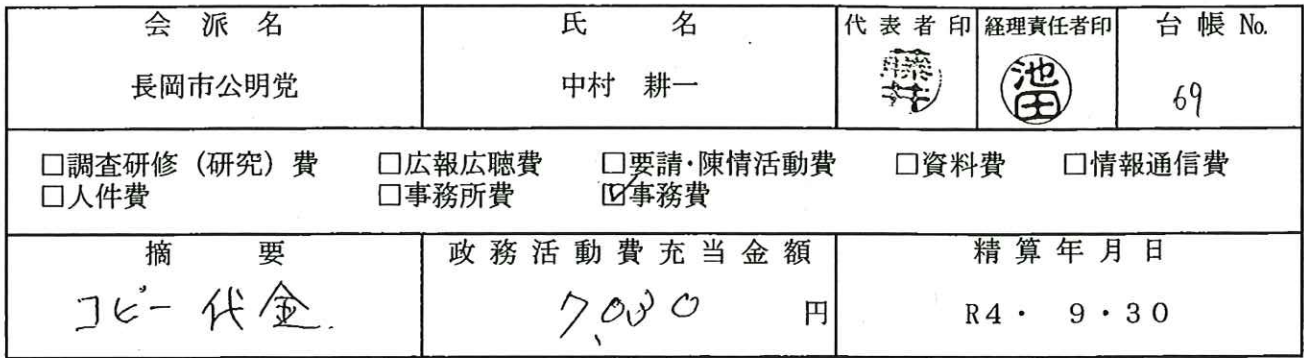 会派名 氏名 代表者印 経理責任者印 台帳No.
長岡市公明党 中村 耕一 池田 69
□調査研修(研究)費 □広報広聴費 □要請・陳情活動費 □資料費 □情報通信費
□人件費 □事務所費 ☑事務費
摘要 政務活動費充当金額 精算年月日
コピー代金. 円 R4・ 9・30